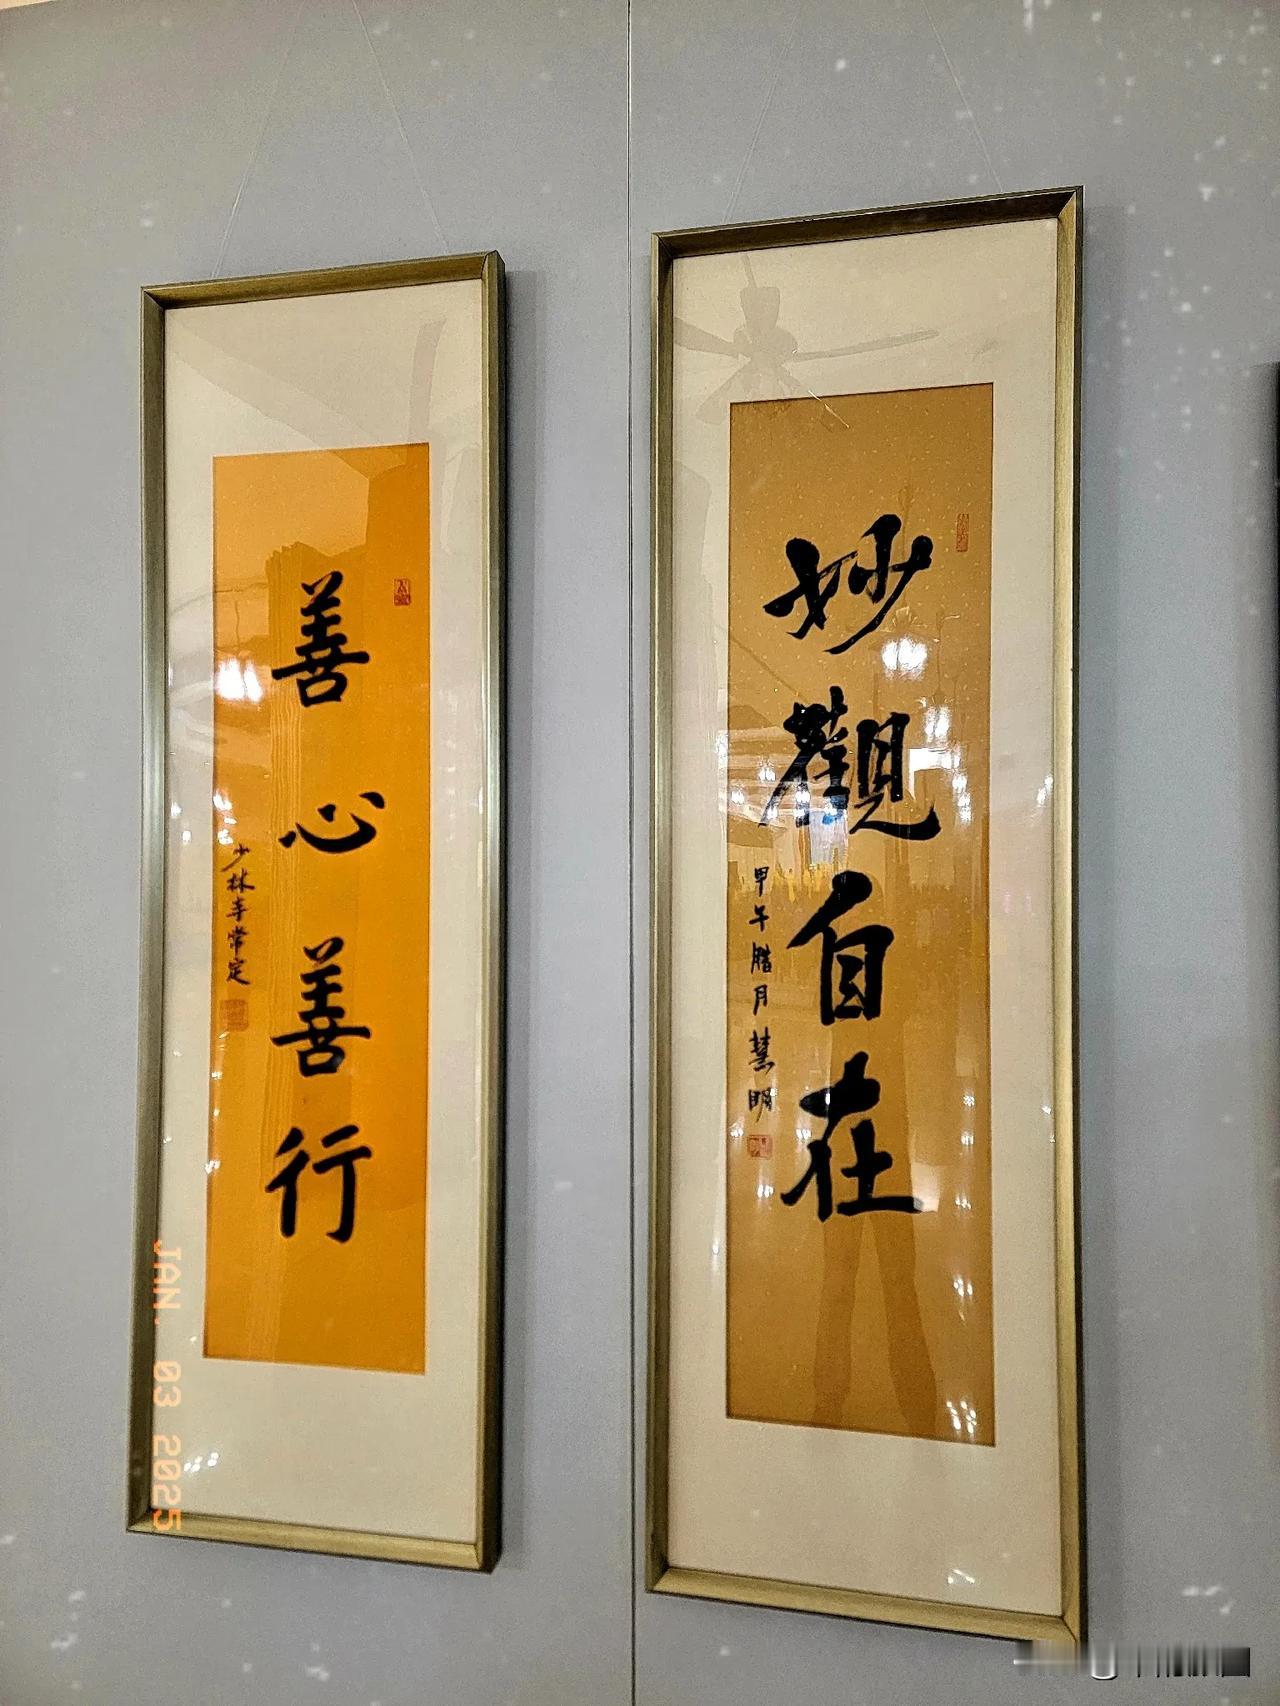 妙觀自在
甲午腊月慧明
善心善行
少林李常定
JAN. 03 2025